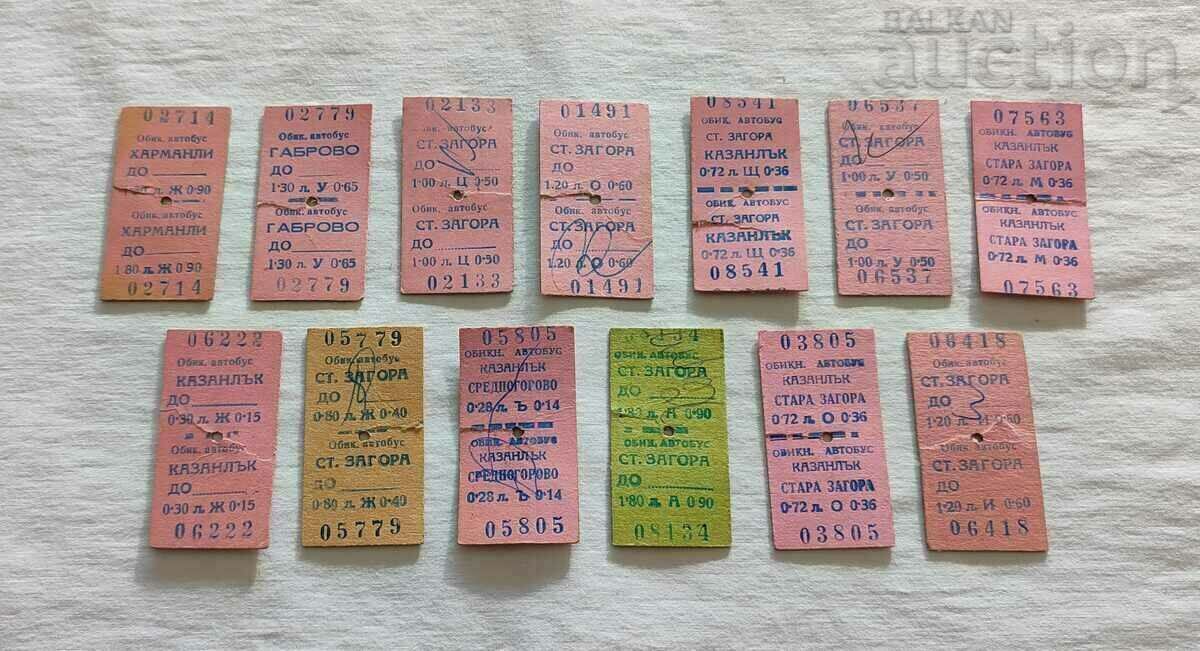 BALKAN
auction
02714
Обик. автобус
ХАРМАНЛИ
ДО
Ж 0·90
Обик. автобус
ХАРМАНЛИ
ДО
1·80 л. Ж 0·90
02714
02779
Обик. автобус
ГАБРОВО
ДО
1·30 л. У 0·65
Обик. автобус
ГАБРОВО
ДО
1·30 л. У 0·65
02779
02133
автобус
СТ. ЗАГОРА
ДО
1·00 л. Ц 0·50
Обик. автобус
СТ. ЗАГОРА
ДО
1·00 л. Ц 0·50
02133
01491
Обик. автобус
СТ. ЗАГОРА
ДО
1.20 л. О 0·60
Обик. автобус
СТ. ЗАГОРА
ДО
1.20 л. О 0·60
01491
08541
ОБИК. АВТОБУС
СТ. ЗАГОРА
КАЗАНЛЪК
0·72 л. Щ 0·36
ОБИК. АВТОБУС
СТ. ЗАГОРА
КАЗАНЛЪК
0·72 л. Щ 0·36
08541
06537
Обик. автобус
СТ. ЗАГОРА
ДО
1·00 л. У 0·50
Обик. автобус
СТ. ЗАГОРА
ДО
1·00 л. У 0·50
06537
07563
ОБИКН. АВТОБУС
КАЗАНЛЪК
СТАРА ЗАГОРА
0·72 л. М 0·36
ОБИКН. АВТОБУС
КАЗАНЛЪК
СТАРА ЗАГОРА
0·72 л. М 0·36
07563
06222
Обик. автобус
КАЗАНЛЪК
ДО
0·30 л. Ж 0·15
Обик. автобус
КАЗАНЛЪК
ДО
0·30 л. Ж 0·15
06222
05779
Обик. автобус
СТ. ЗАГОРА
ДО
0·80 л. Ж 0·40
Обик. автобус
СТ. ЗАГОРА
ДО
0·80 л. Ж 0·40
05779
05805
ОБИКН. АВТОБУС
КАЗАНЛЪК
СРЕДНОГОРОВО
0·28 л. Ъ 0·14
ОБИКН. АВТОБУС
КАЗАНЛЪК
СРЕДНОГОРОВО
0·28 л. Ъ 0·14
05805
08134
Обик. автобус
СТ. ЗАГОРА
ДО
1·80 л. А 0·90
Обик. автобус
СТ. ЗАГОРА
ДО
1·80 л. А 0·90
08134
03805
ОБИКН. АВТОБУС
КАЗАНЛЪК
СТАРА ЗАГОРА
0·72 л. О 0·36
ОБИКН. АВТОБУС
КАЗАНЛЪК
СТАРА ЗАГОРА
0·72 л. О 0·36
03805
06418
Обик. автобус
СТ. ЗАГОРА
ДО
1·20 л. И 0·60
Обик. автобус
СТ. ЗАГОРА
ДО
1·20 л. И 0·60
06418